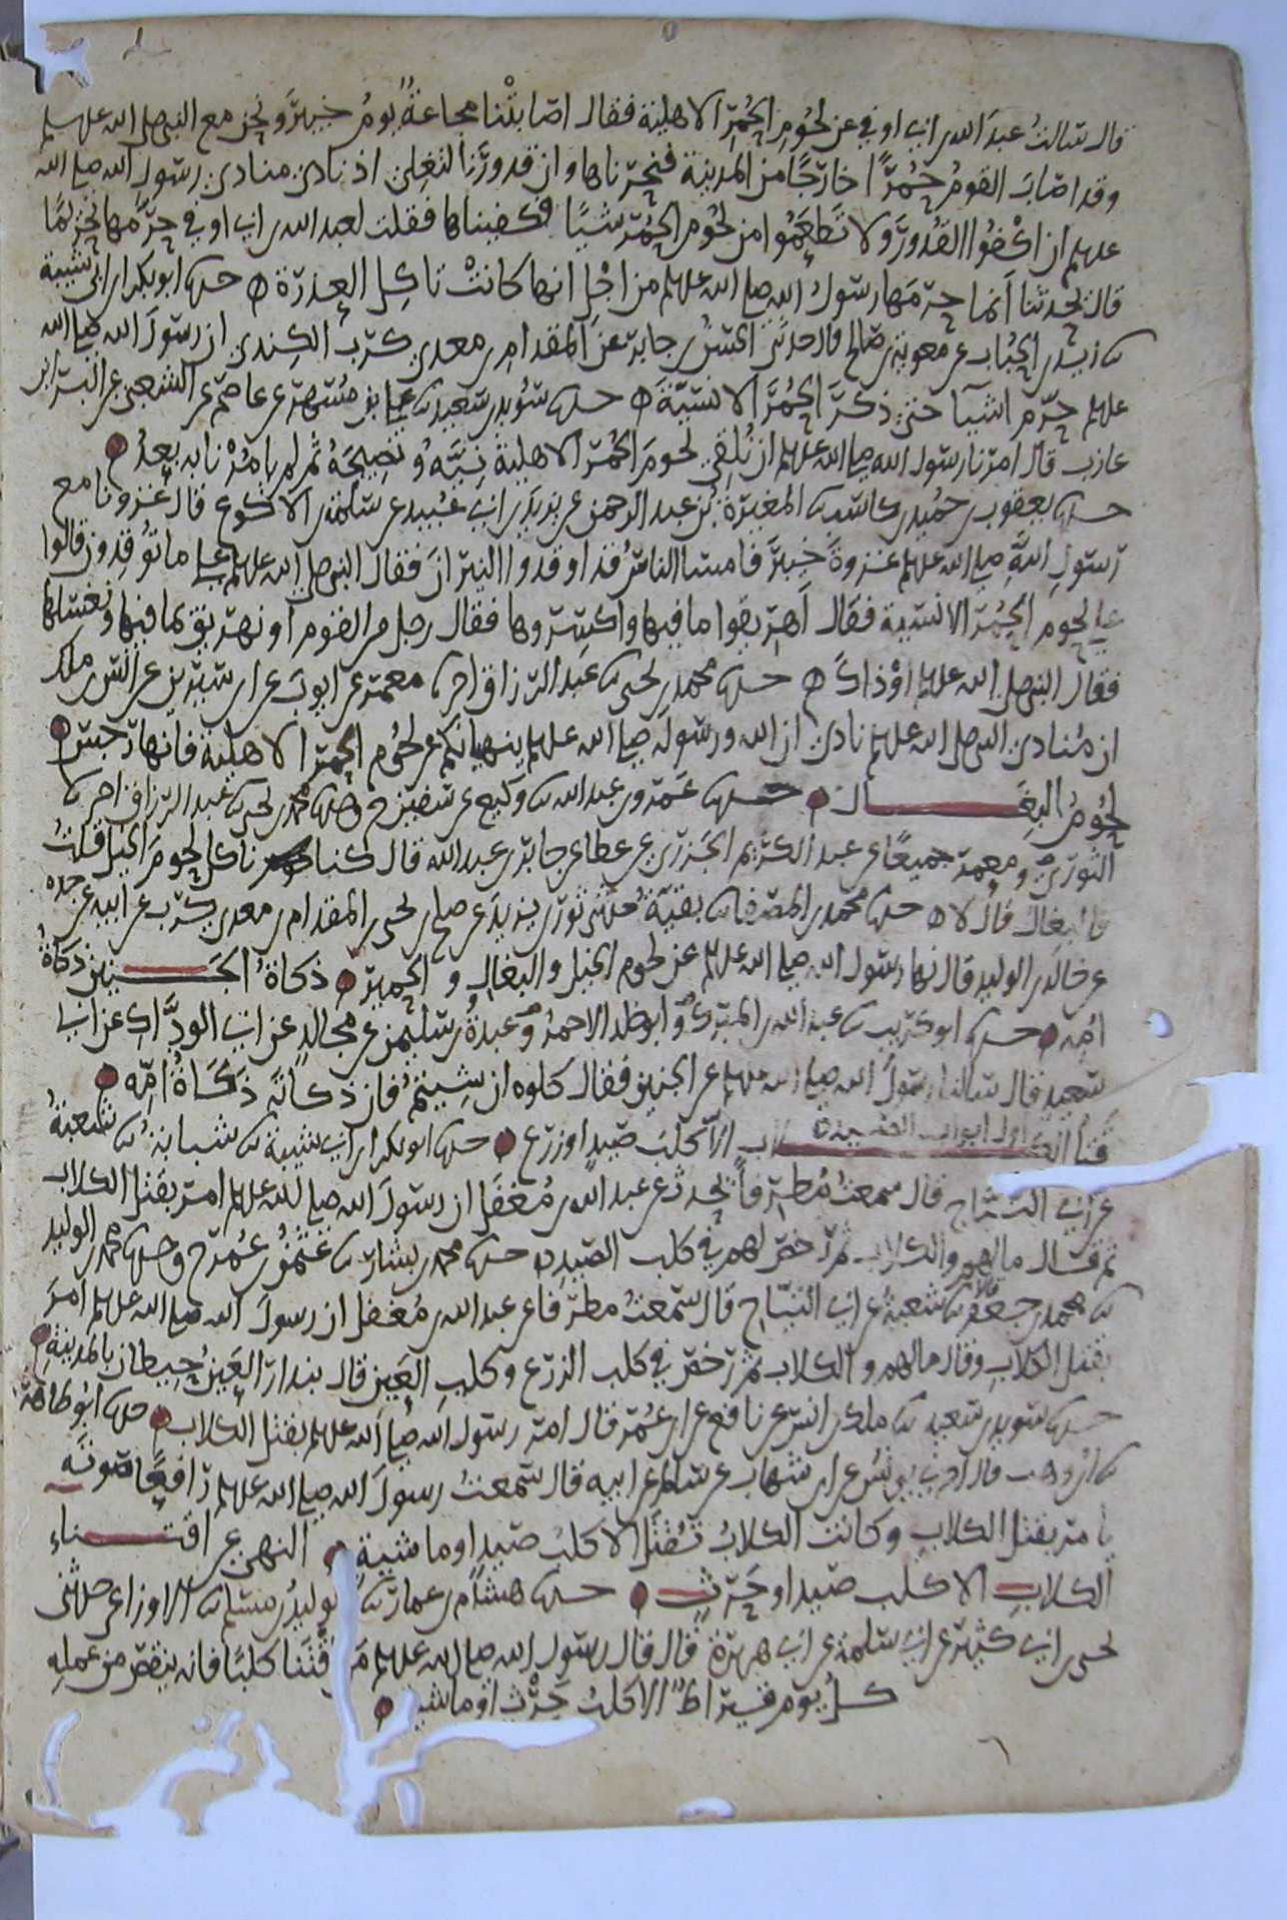 قال سالتُ عبدَ الله بن ابي اوفى عن لحُومِ الحُمُرِ الاهلية فقال اصَابَتْنا مجاعَةٌ يومُ خيبرَ ونحن مع النبي صلى الله عليه وسلم
وقد اصَابَ القومُ حُمُرًا خارجًا من المدينة فنحَرناها وان قدورَنا لتغِلى اذ نادى منادى رسولِ الله صلى الله
عليه وسلم ان اكْفُوا القُدورَ ولا تَطعَمُوا من لحُومِ الحُمُرِ شيئا فكفيناها فقلت لعبد الله بن ابي اوفى حرّمها تحريمًا
قال تحدثنا أنما حرّمها رسولُ الله صلى الله عليه وسلم من اجْلِ انها كانتْ تاكل العِذرَة ه حدثنا ابو بكر بن ابي شيبة
ثنا زيد بن الحُباب عن معوية بن صالح قال حدثنى الحسنُ بن جابر عن المقدام بن معدى كرب الكِندى ان رسولَ الله صلى الله
عليه وسلم حرّم اشيآ حتى ذكرَ الحُمُرَ الانسيّةَ ه حدثنا سُويد بن سعيد ثنا على بن مُسهر عن عاصم عن الشعبى عن البراء بن
عازب قال امرنا رسولُ الله صلى الله عليه وسلم ان نُلقِى لحومَ الحُمُر الاهلية نِيَّهُ ونَضِيجَهُ ثم لم يامُرْنا به بعدُ
حدثنا يعقوب بن حُميد بن كاسب ثنا المغيرةُ بن عبد الرحمن عن يزيد بن ابي عُبيد عن سلمة بن الاكوع قال غزونا مع
رسولِ اللهِ صلى الله عليه وسلم غزوةَ خيبرَ فامسا الناسُ قد اوقدوا النيرانَ فقال النبي صلى الله عليه وسلم على ما تُوقِدون قالوا
على لحوم الحُمُر الانسية فقال اهريقوا ما فيها واكسِروها فقال رجل من القوم او نهريق ما فيها ونغسلها
فقال النبي صلى الله عليه وسلم اوْ ذاكَ ه حدثنا محمد بن يحيى ثنا عبد الرزاق اخبرنا معمر عن ايوبَ عن ابن سيرين عن انس بن ملك
ان مُنادى النبي صلى الله عليه وسلم نادى ان الله ورسوله صلى الله عليه وسلم ينهيانكم عن لحُوم الحُمُر الاهلية فانها رجس
لحُومُ البِغـــال حدثنا عَمرو بن عبد الله ثنا وكيع عن سفين ح وحدثنا محمد بن يحيى ثنا عبد الرزاق اخبرنا
الثورى ومعمر جميعًا عن عبد الكريم الجزرى عن عطا عن جابر بن عبد الله قال كنا ناكل لحومَ الخيل قلتُ
فالبغال قال لا ه حدثنا محمد بن المصفا ثنا بقيّة حدثنى ثور بن يزيدَ عن صالح بن يحيى بن المقدام بن معدى كرب عن ابيه عن جده
عن خالد بن الوليد قال نها رسول الله صلى الله عليه وسلم عن لحوم الخيل والبغال والحمير ذكاةُ الجَـــنين ذكاةُ
امّه حدثنا ابو كريب ثنا عبد الله بن المبرك وابو خلد الاحمرُ وعبدةُ بن سليمن عن مجالد عن ابي الودَّاك عن ابي
سعيد قال سالنا رسولَ الله صلى الله عليه وسلم عن الجنين فقال كلوه ان شِيتمُ فان ذكاتَه ذكاةُ امّه
اول ابواب الصيد ه
قتل الكـــلاب الا كلبَ صيد او زرع حدثنا ابو بكر بن ابي شيبة ثنا شبابةُ ثنا شعبةُ
عن ابي التياح قال سمعتُ مُطرفًا يحدث عن عبد الله بن مُغفل ان رسولَ الله صلى الله عليه وسلم امر بقتل الكلاب
ثم قال ما لهم والكلاب ثم رخص لهم في كلب الصيد ه حدثنا محمد بن بشار ثنا عثمنُ بن عُمر ح وحدثنا محمد بن الوليد
ثنا محمد بن جعفر ثنا شعبةُ عن ابي التيّاح قال سَمعتُ مطرفا عن عبد الله بن مُغفل ان رسولَ الله صلى الله عليه وسلم امرَ
بقتل الكلابِ وقال ما لهم والكلاب ثم رَخص في كلب الزرع وكلبِ العَين قال بندار العَينُ حِيطان بالمدينة
حدثنا سويد بن سعيد ثنا ملك بن انس عن نافع عن ابن عُمر قال امر رسول الله صلى الله عليه وسلم بقتل الكلاب حدثنا ابو طاهر
ثنا ابن وهب قال اخبرنى يونسُ عن ابن شهاب عن سالم عن ابيه قال سَمعتُ رسولَ الله صلى الله عليه وسلم رافعًا صَوتَه
يامر بقتل الكلابِ وكانت الكلابُ تُقتَل الا كلبَ صيد او ماشية النهى عن اقتـــناء
الكلابِ الا كلب صيد او حَرث حدثنا هشام بن عمار ثنا الوليدُ بن مسلم ثنا الاوزاعى حدثنى
يحيى بن ابي كثير عن ابي سلمة عن ابي هريرة قال قال رسول الله صلى الله عليه وسلم مَن اقتنا كلبًا فانه ينقص من عمله
كلَّ يوم قيراطٌ الا كلبَ حَرْث او ماشية